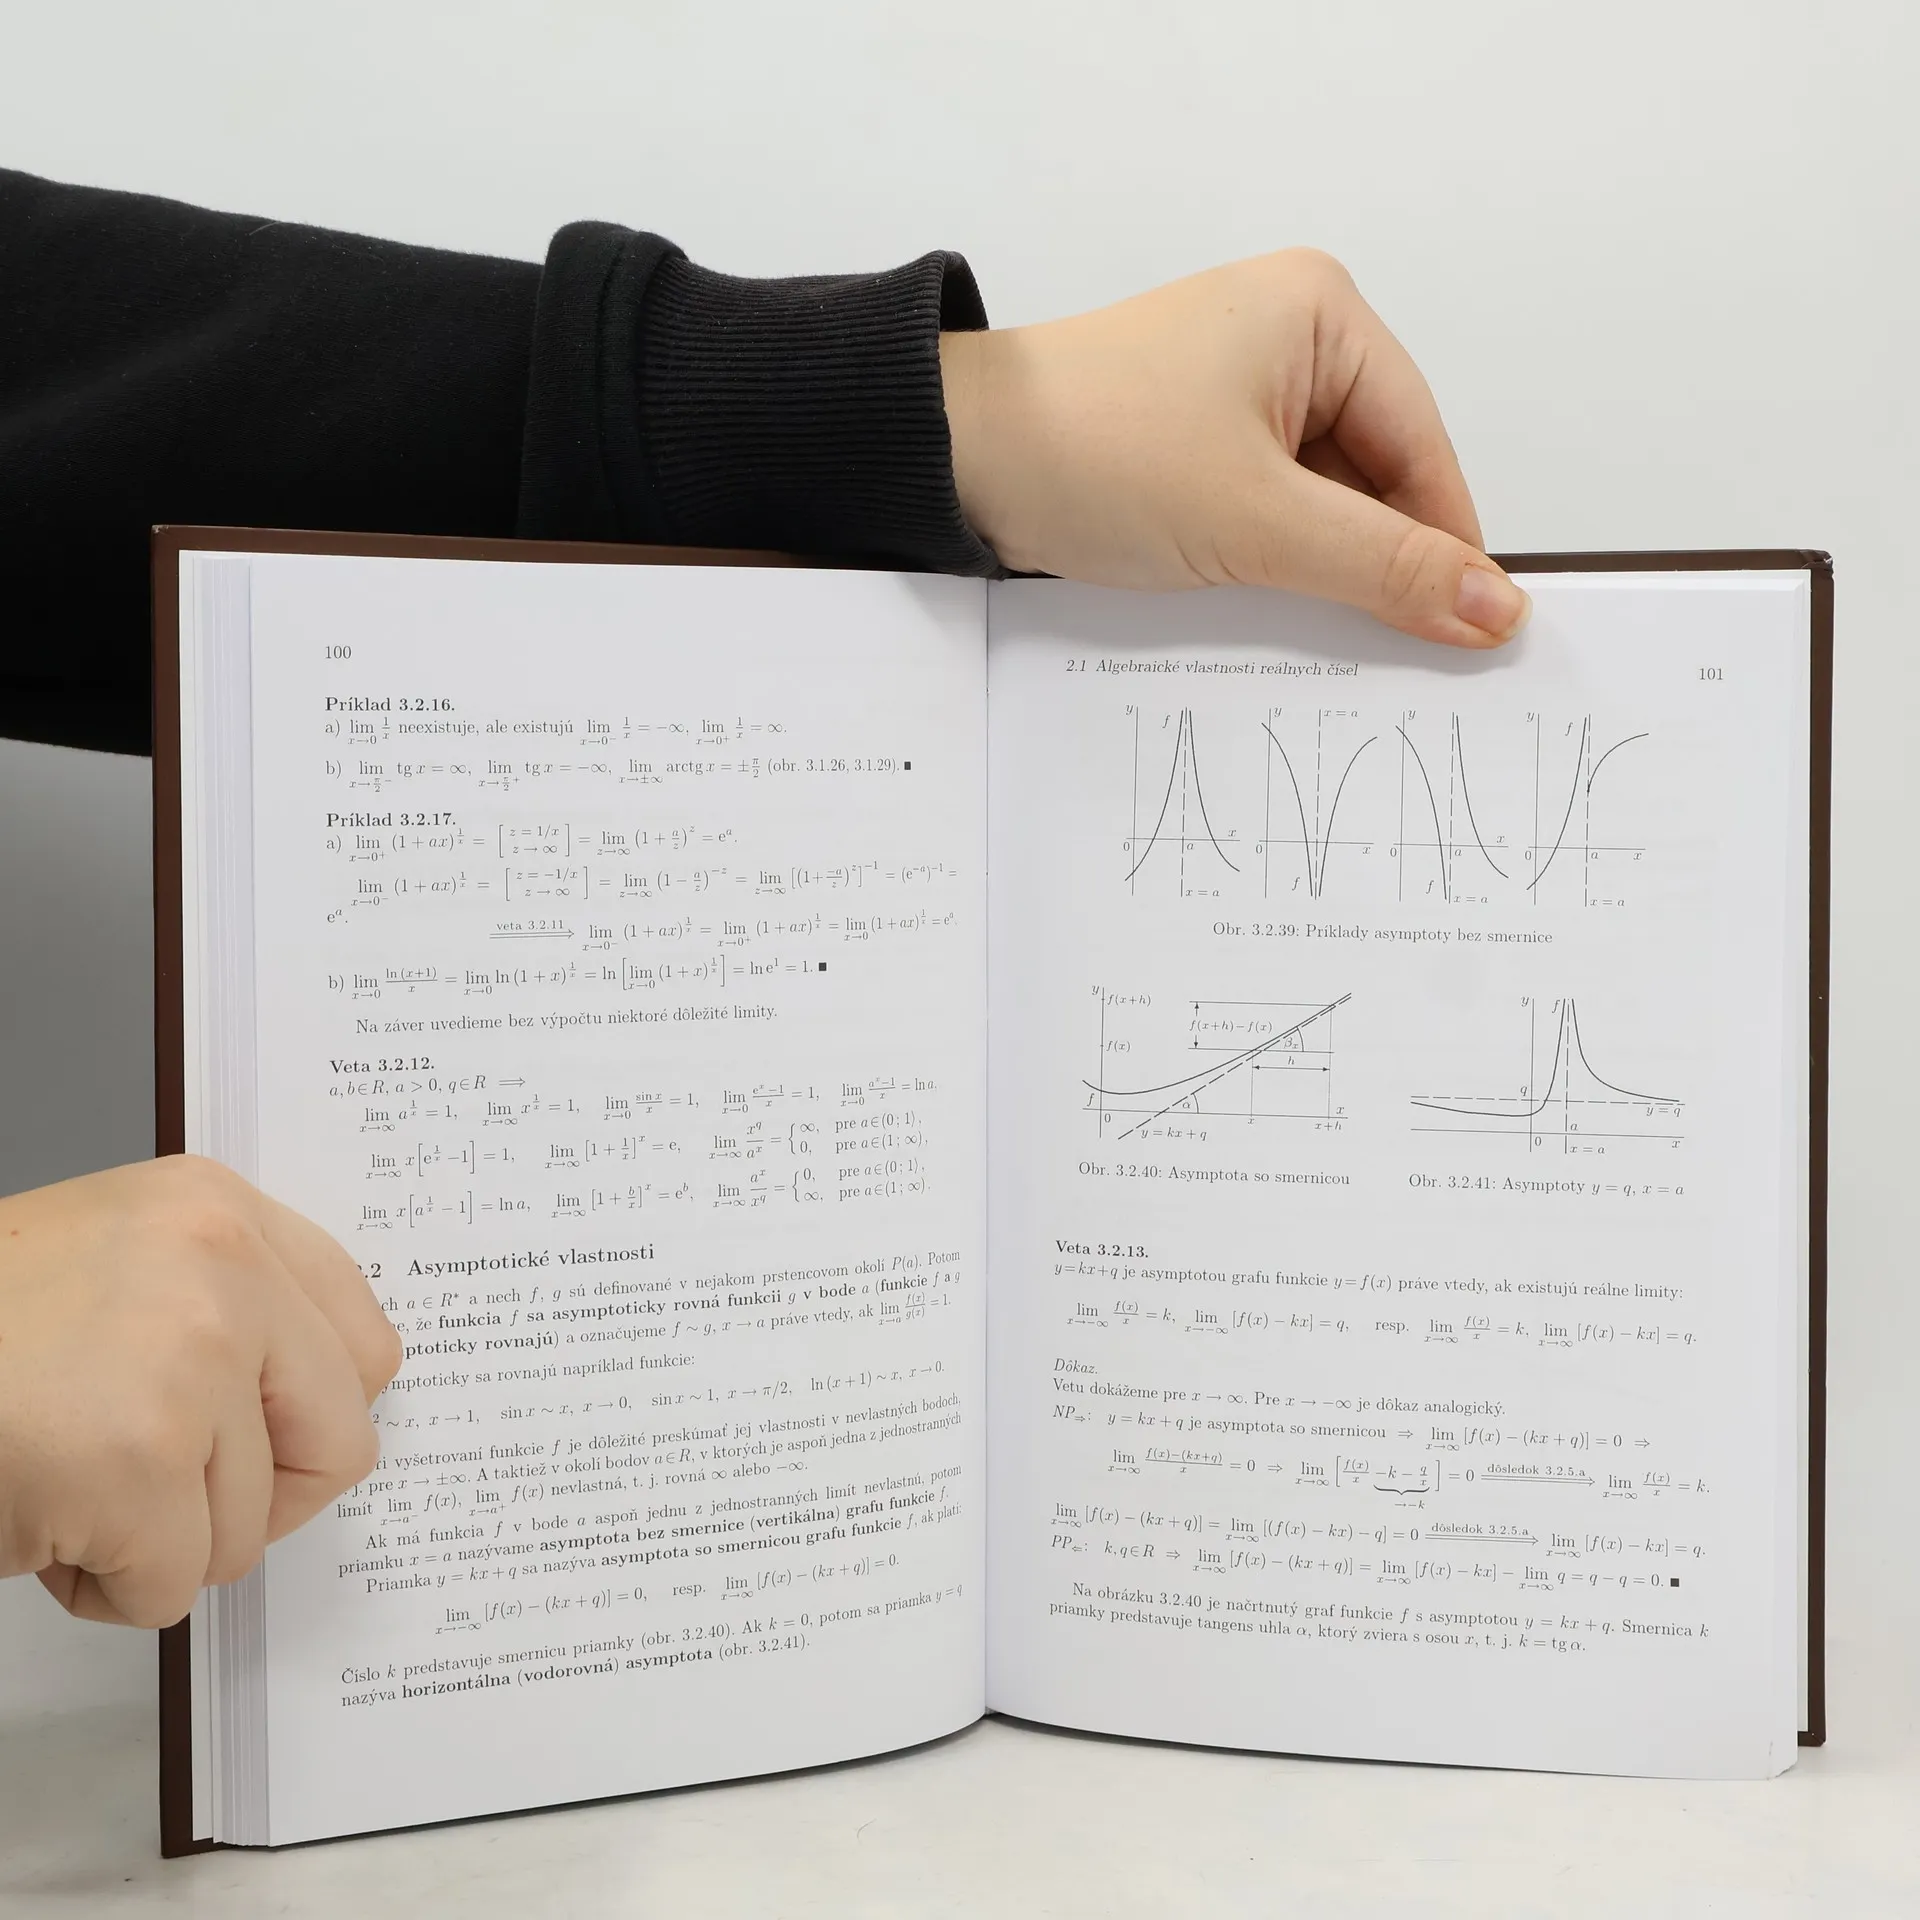 100
Príklad 3.2.16.
a) lim_{x→0} 1/x neexistuje, ale existujú lim_{x→0^-} 1/x = −∞, lim_{x→0^+} 1/x = ∞.
b) lim_{x→π/2^-} tg x = ∞, lim_{x→π/2^+} tg x = −∞, lim_{x→±∞} arctg x = ±π/2 (obr. 3.1.26, 3.1.29). ■
Príklad 3.2.17.
a) lim_{x→0^+} (1 + ax)^{1/x} = [z = 1/x, z → ∞] = lim_{z→∞} (1 + a/z)^z = e^a.
lim_{x→0^-} (1 + ax)^{1/x} = [z = −1/x, z → ∞] = lim_{z→∞} (1 − a/z)^{−z} = lim_{z→∞} [(1+ −a/z)^z]^{−1} = (e^{−a})^{−1} =
e^a.
veta 3.2.11 ⟹ lim_{x→0^-} (1 + ax)^{1/x} = lim_{x→0^+} (1 + ax)^{1/x} = lim_{x→0} (1 + ax)^{1/x} = e^a.
b) lim_{x→0} ln (x+1)/x = lim_{x→0} ln (1 + x)^{1/x} = ln [lim_{x→0} (1 + x)^{1/x}] = ln e^1 = 1. ■
Na záver uvedieme bez výpočtu niektoré dôležité limity.
Veta 3.2.12.
a, b∈R, a > 0, q∈R ⟹
lim_{x→∞} a^{1/x} = 1, lim_{x→∞} x^{1/x} = 1, lim_{x→0} sin x/x = 1, lim_{x→0} e^x−1/x = 1, lim_{x→0} a^x−1/x = ln a,
lim_{x→∞} x[e^{1/x} −1] = 1, lim_{x→∞} [1 + 1/x]^x = e, lim_{x→∞} x^q/a^x = {∞, pre a∈(0; 1), 0, pre a∈(1; ∞),
lim_{x→∞} x[a^{1/x} − 1] = ln a, lim_{x→∞} [1 + b/x]^x = e^b, lim_{x→∞} a^x/x^q = {0, pre a∈(0; 1), ∞, pre a∈(1; ∞).
.2 Asymptotické vlastnosti
ch a ∈ R* a nech f, g sú definované v nejakom prstencovom okolí P(a). Potom
e, že funkcia f sa asymptoticky rovná funkcii g v bode a (funkcie f a g
ptoticky rovnajú) a označujeme f ∼ g, x → a práve vtedy, ak lim_{x→a} f(x)/g(x) = 1.
ymptoticky sa rovnajú napríklad funkcie:
2 ∼ x, x → 1, sin x ∼ x, x → 0, sin x ∼ 1, x → π/2, ln (x + 1) ∼ x, x → 0.
ri vyšetrovaní funkcie f je dôležité preskúmať jej vlastnosti v nevlastných bodoch,
. j. pre x → ±∞. A taktiež v okolí bodov a∈R, v ktorých je aspoň jedna z jednostranných
limít lim_{x→a^-} f(x), lim_{x→a^+} f(x) nevlastná, t. j. rovná ∞ alebo −∞.
Ak má funkcia f v bode a aspoň jednu z jednostranných limít nevlastnú, potom
priamku x = a nazývame asymptota bez smernice (vertikálna) grafu funkcie f.
Priamka y = kx + q sa nazýva asymptota so smernicou grafu funkcie f, ak platí:
lim_{x→−∞} [f(x) − (kx + q)] = 0, resp. lim_{x→∞} [f(x) − (kx + q)] = 0.
Číslo k predstavuje smernicu priamky (obr. 3.2.40). Ak k = 0, potom sa priamka y = q
nazýva horizontálna (vodorovná) asymptota (obr. 3.2.41).
2.1 Algebraické vlastnosti reálnych čísel 101
y f 0 a x x = a
y x = a 0 x f
y 0 a x f x = a
y f 0 a x x = a
Obr. 3.2.39: Príklady asymptoty bez smernice
y f(x+h) f(x+h)−f(x) f(x) β_x h f α 0 x x+h x y = kx + q
y f q y = q a 0 x = a x
Obr. 3.2.40: Asymptota so smernicou
Obr. 3.2.41: Asymptoty y = q, x = a
Veta 3.2.13.
y=kx+q je asymptotou grafu funkcie y=f(x) práve vtedy, ak existujú reálne limity:
lim_{x→−∞} f(x)/x = k, lim_{x→−∞} [f(x) − kx] = q, resp. lim_{x→∞} f(x)/x = k, lim_{x→∞} [f(x) − kx] = q.
Dôkaz.
Vetu dokážeme pre x → ∞. Pre x → −∞ je dôkaz analogický.
NP⇒: y = kx + q je asymptota so smernicou ⇒ lim_{x→∞} [f(x) − (kx + q)] = 0 ⇒
lim_{x→∞} f(x)−(kx+q)/x = 0 ⇒ lim_{x→∞} [f(x)/x −k − q/x] = 0 dôsledok 3.2.5.a ⟹ lim_{x→∞} f(x)/x = k.
→−k
lim_{x→∞} [f(x) − (kx + q)] = lim_{x→∞} [(f(x) − kx) − q] = 0 dôsledok 3.2.5.a ⟹ lim_{x→∞} [f(x) − kx] = q.
PP⇐: k, q∈R ⇒ lim_{x→∞} [f(x) − (kx + q)] = lim_{x→∞} [f(x) − kx] − lim_{x→∞} q = q − q = 0. ■
Na obrázku 3.2.40 je načrtnutý graf funkcie f s asymptotou y = kx + q. Smernica k
priamky predstavuje tangens uhla α, ktorý zviera s osou x, t. j. k = tg α.